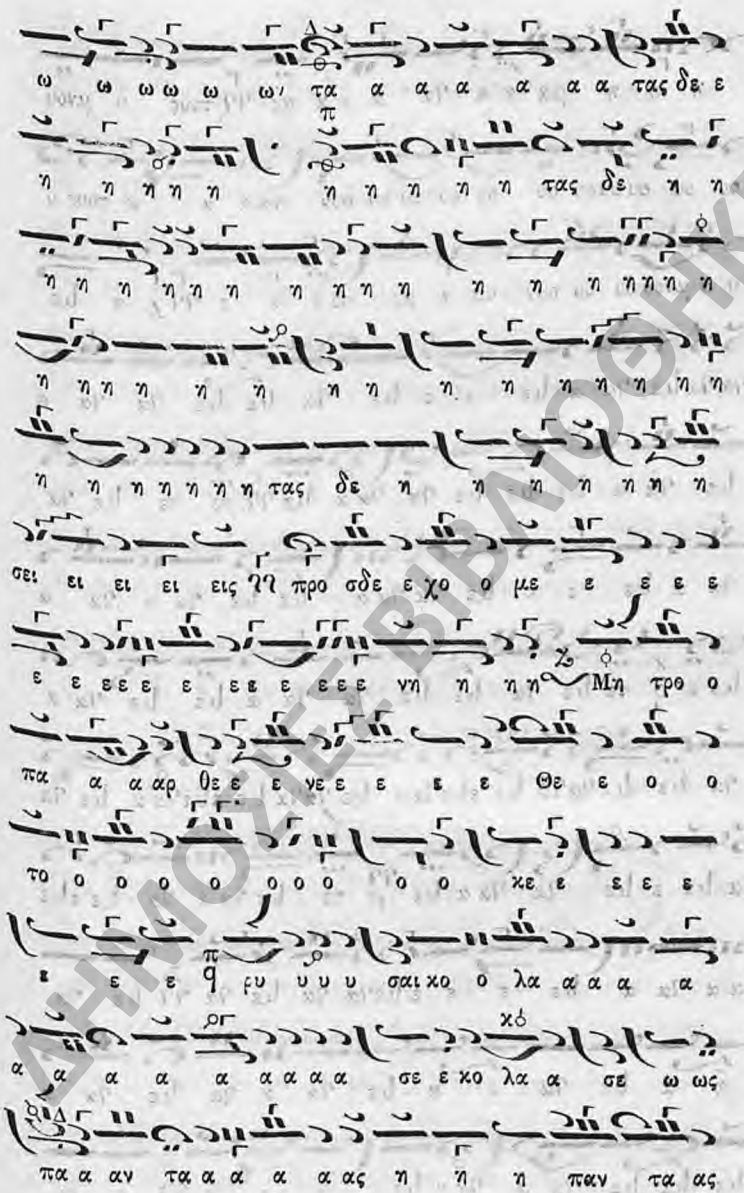 ω ω ω ω ω ω τα α α α α α α τας δε ε
η η η η η η η η η η τας δε η η
η η η η η η η η η η η η η η η
η η η η η η η η η η η η η η
η η η η η η η τας δε η η η η η η η
σει ει ει ει εις προ σδε ε χο ο με ε ε ε ε
ε ε ε ε ε ε ε ε ε ε ε ε νη η η η Μη τρο ο
πα α α αρ θε ε ε νε ε ε ε ε Θε ε ο ο
το ο ο ο ο ο ο ο ο κε ε ε ε ε
ε ε ε ρυ υ υ υ σαι κο ο λα α α α α
α α α α α α α α α σε ε κο λα α σε ω ως
πα α αν τα α α α α ας η η η παν τα ας
ΔΗΜΟΣΙΕΣ ΒΙΒΛΙΟΘΗΚ